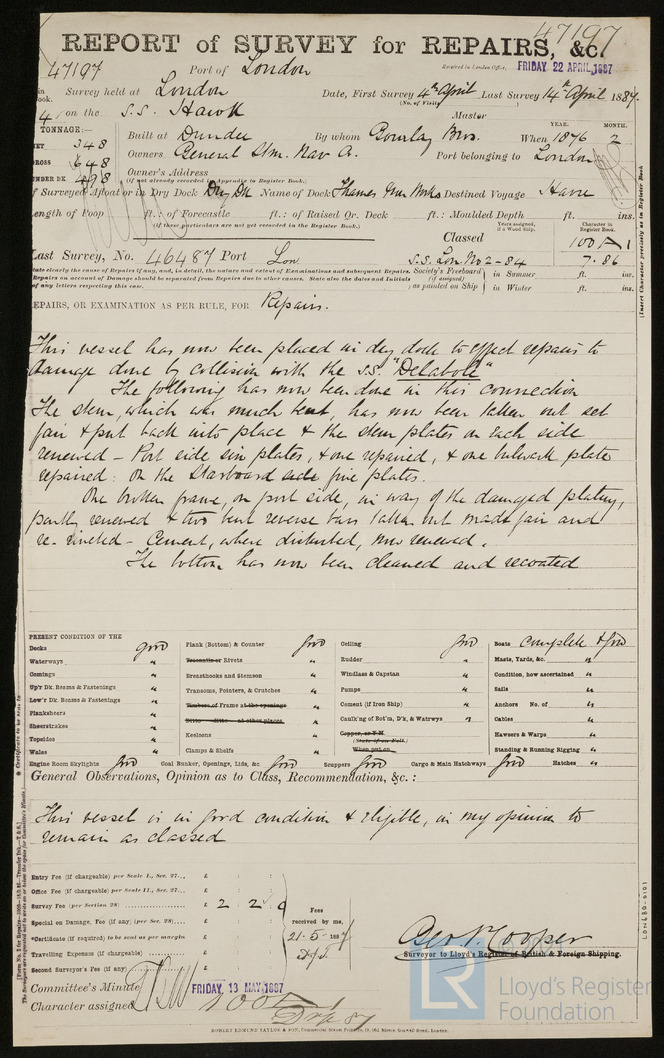 47197
REPORT of SURVEY for REPAIRS, &c.
47197 Port of London
Received in London Office, FRIDAY 22 APRIL 1887
Survey held at London Date, First Survey 4th April Last Survey 14th April 1887.
(No. of Visits)
4 on the S.S. Hawk Master
TONNAGE:— YEAR. MONTH.
NET 348 Built at Dundee By whom Gourlay Bros. When 1876 2
GROSS 648 Owners General Stm. Nav Co. Port belonging to London
UNDER DK 498 Owner's Address
(if not already recorded in Appendix to Register Book.)
If Surveyed Afloat or in Dry Dock Dry Dk Name of Dock Thames Destined Voyage Havre
Length of Poop ft.: of Forecastle ft.: of Raised Qr. Deck ft.: Moulded Depth ft. ins.
(If these particulars are not yet recorded in the Register Book.)
Years assigned, if a Wood Ship. Character in Register Book.
Classed 100A1
Last Survey, No. 46487 Port Lon S.S. Lon. No 2-84 7.86
State clearly the cause of Repairs if any, and, in detail, the nature and extent of Examinations and subsequent Repairs. Society's Freeboard in Summer ft. ins.
Repairs on account of Damage should be separated from Repairs due to other causes. State also the dates and Initials (if assigned)
of any letters respecting this case. as painted on Ship in Winter ft. ins.
REPAIRS, OR EXAMINATION AS PER RULE, FOR Repairs.
(Insert Character precisely as in Register Book
This vessel has now been placed in dry dock to effect repairs to
damage done by collision with the S.S. "Delabole"
The following has now been done in this connection
The stem, which was much bent, has now been taken out set
fair & put back into place & the stem plates on each side
renewed – Port side six plates, & one repaired, & one bulwark plate
repaired: On the Starboard side five plates.
One broken frame, on port side, in way of the damaged plating,
partly renewed & two bent reverse bars taken out made fair and
re-riveted – Cement, where disturbed, now renewed.
The bottom has now been cleaned and recoated
PRESENT CONDITION OF THE
Decks good
Waterways "
Comings "
Up'r Dk. Beams & Fastenings "
Low'r Dk. Beams & Fastenings "
Planksheers "
Sheerstrakes "
Topsides "
Wales "
Plank (Bottom) & Counter good
Treenails or Rivets "
Breasthooks and Stemson "
Transoms, Pointers, & Crutches "
Timbers of Frame at the openings "
Ditto Ditto at other places
Keelsons "
Clamps & Shelfs "
Ceiling good
Rudder "
Windlass & Capstan "
Pumps "
Cement (if Iron Ship) "
Caulking of Bot'm, D'k, & Watrwys "
Copper, or Y.M.
(State if on Felt)
When put on
Boats complete & good
Masts, Yards, &c. "
Condition, how ascertained "
Sails "
Anchors No. of "
Cables "
Hawsers & Warps "
Standing & Running Rigging "
Engine Room Skylights good Coal Bunker, Openings, Lids, &c. good Scuppers good Cargo & Main Hatchways good Hatches "
General Observations, Opinion as to Class, Recommendation, &c. :
This vessel is in good condition & eligible, in my opinion to
remain as classed
Entry Fee (if chargeable) per Scale I., Sec. 27... £ : :
Office Fee (if chargeable) per Scale II., Sec. 27... £ : :
Survey Fee (per Section 28) £ 2 : 2 : 0
Special on Damage, Fee (if any) (per Sec. 28) £ : :
*Certificate (if required) to be sent as per margin £ : :
Travelling Expenses (if chargeable) £ : :
Second Surveyor's Fee (if any) £ : :
Fees
received by me,
21.5.1887
Geo. N Cooper
Surveyor to Lloyd's Register of British & Foreign Shipping.
Committee's Minute FRIDAY, 13 MAY 1887
Character assigned 100A1
ROBERT EDMUND TAYLOR & SON, Commercial Steam Printers, 19, Old Street, Goswell Road, London.
LR
Lloyd's Register
Foundation